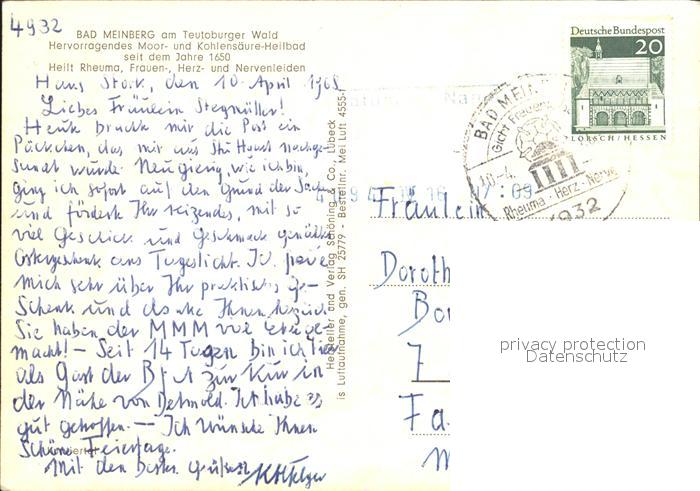 4932
BAD MEINBERG am Teutoburger Wald
Hervorragendes Moor- und Kohlensäure-Heilbad
seit dem Jahre 1650
Heilt Rheuma, Frauen-, Herz- und Nervenleiden
Haus Stork, den 10. April 1968
Liebes Fräulein Stegmüller!
Heute brachte mir die Post ein
Päckchen, das mir aus Haus nachge-
sandt wurde. Neugierig, wie ich bin,
ging ich sofort auf den Grund der Sache
und förderte Ihr reizendes, mit so
viel Geschick und Geschmack gewähltes
Ostergeschenk ans Tageslicht. Ich
mich sehr über Ihr praktisches Ge-
schenk und danke Ihnen
Sie haben der MMM
macht! — Seit 14 Tagen bin ich hier
als Gast der BfA zur Kur in
der Nähe von Detmold. Ich habe es
gut getroffen. — Ich wünsche Ihnen
Schöne Feiertage.
Mit den besten Grüßen
Hersteller und Verlag Schöning & Co., Lübeck
is Luftaufnahme, gen. SH 25779 - Bestellnr. Mei Luft 4555-1
Deutsche Bundespost
20
LORSCH / HESSEN
BAD MEIN
Gicht Frauen
10.-4.
17:09
Rheuma-Herz-Nerve
4932
Fräulein
Doroth
Bo
7
Fa
privacy protection
Datenschutz